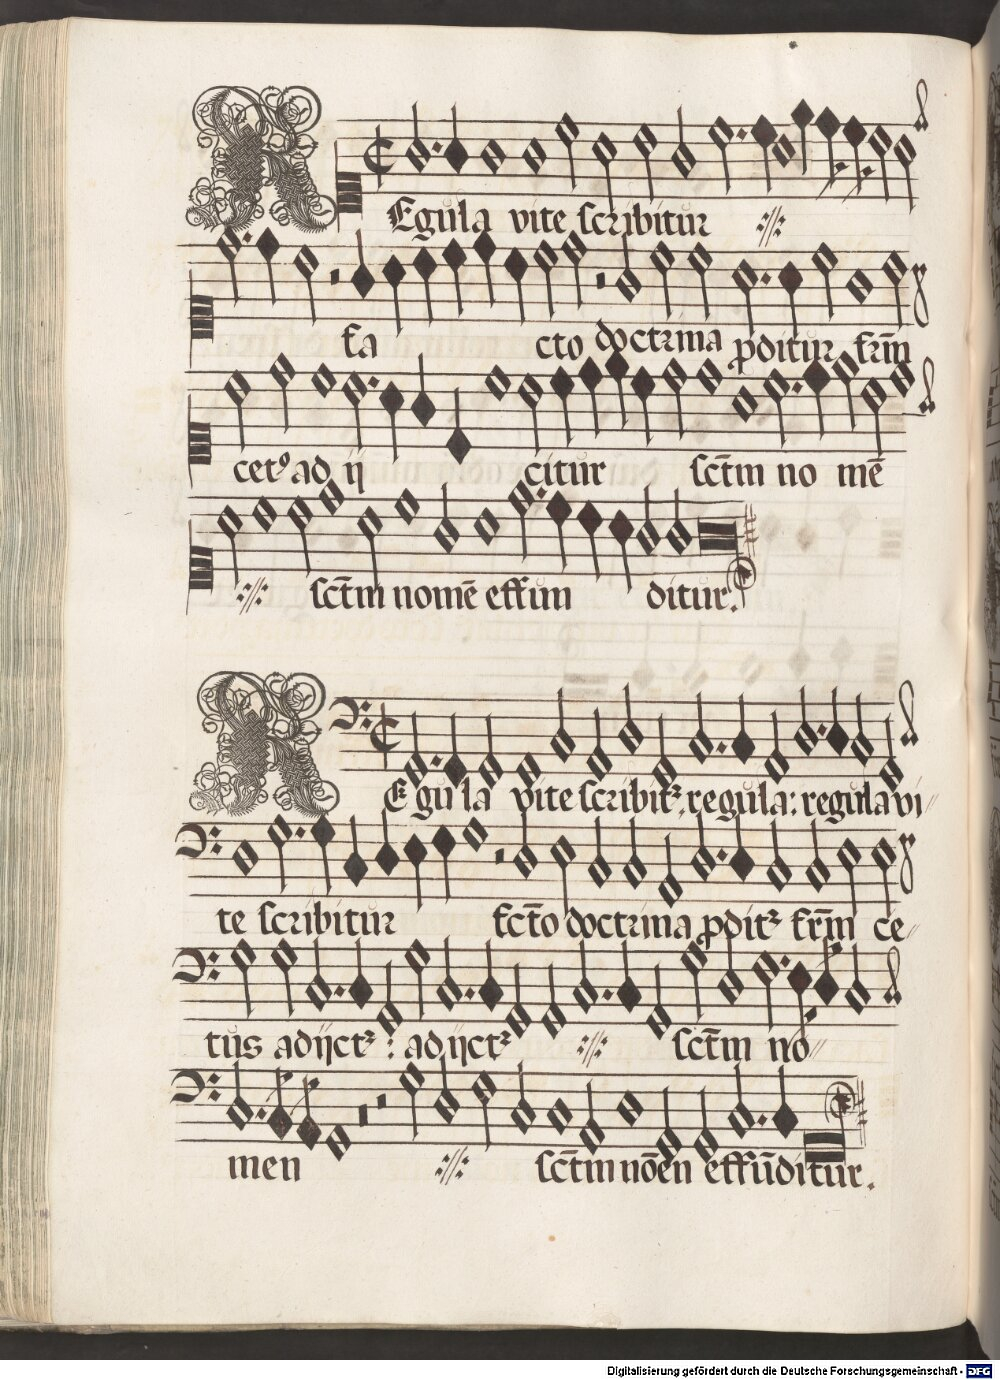 REgula vite scribitur
facto doctrina ꝓditur frm̄
cetꝰ ad ijcitur sct̄m no mē
sct̄m nomē effunditur.
REgula vite scribitꝛ. regula: regula vi//
te scribitur fct̄o doctrina ꝓditꝛ frm̄ ce//
tus adijctꝛ: adijctꝛ sct̄m no//
men sct̄m nōen effūditur.
Digitalisierung gefördert durch die Deutsche Forschungsgemeinschaft - DFG